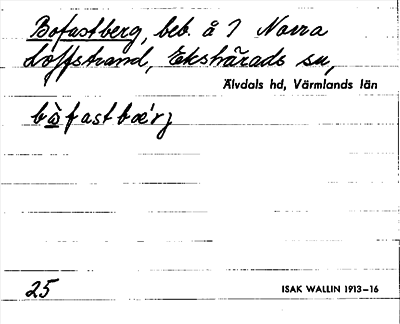 Bofastberg, beb. å 7 Norra
Löffstrand, Ekshärads sn,
Älvdals hd, Värmlands län
bὰfastbæ̀rj
25
ISAK WALLIN 1913–16